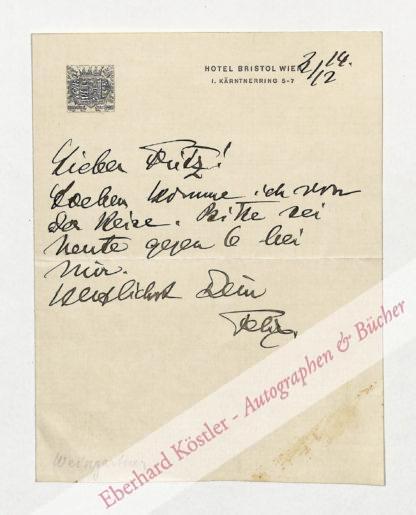 HOTEL BRISTOL WIEN
I. KÄRNTNERRING 5-7
2/12 14.
Lieber Fritz!
Soeben komme ich von
der Reise. Bitte sei
heute gegen 6 bei
mir.
Herzlichst Dein
Felix.
Weingartner
Eberhard Köstler - Autographen & Bücher